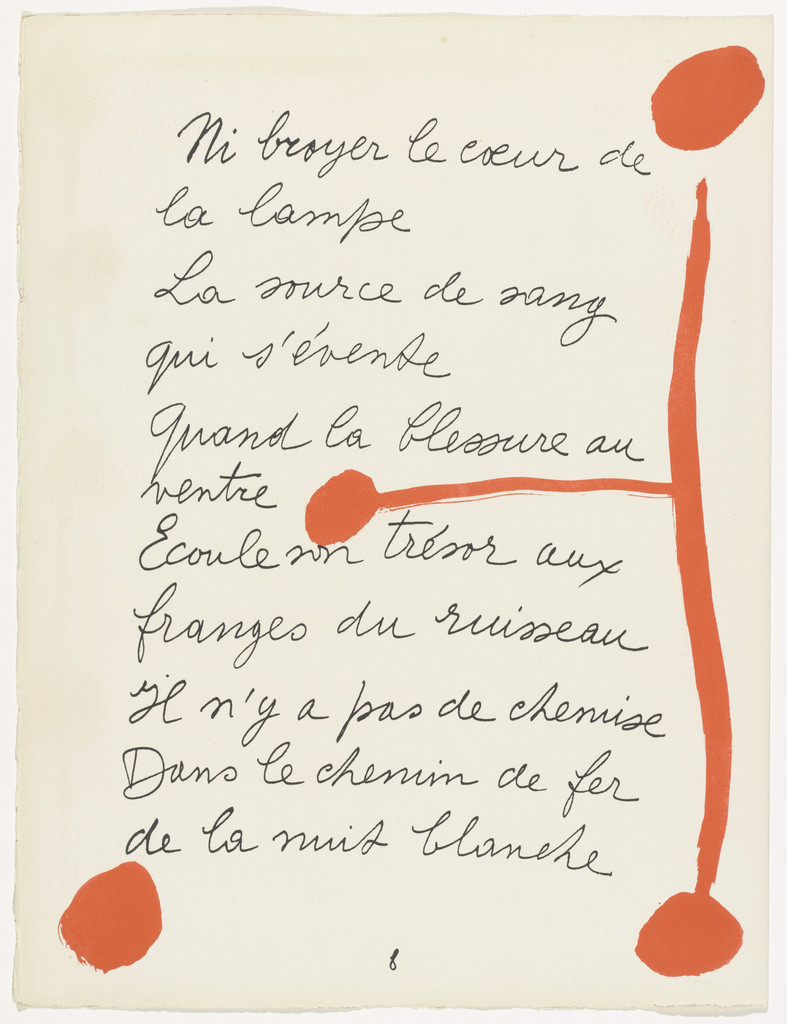 Ni broyer le cœur de
la lampe
La source de sang
qui s'évente
Quand la blessure au
ventre
Ecoule son trésor aux
franges du ruisseau
Il n'y a pas de chemise
Dans le chemin de fer
de la nuit blanche
8